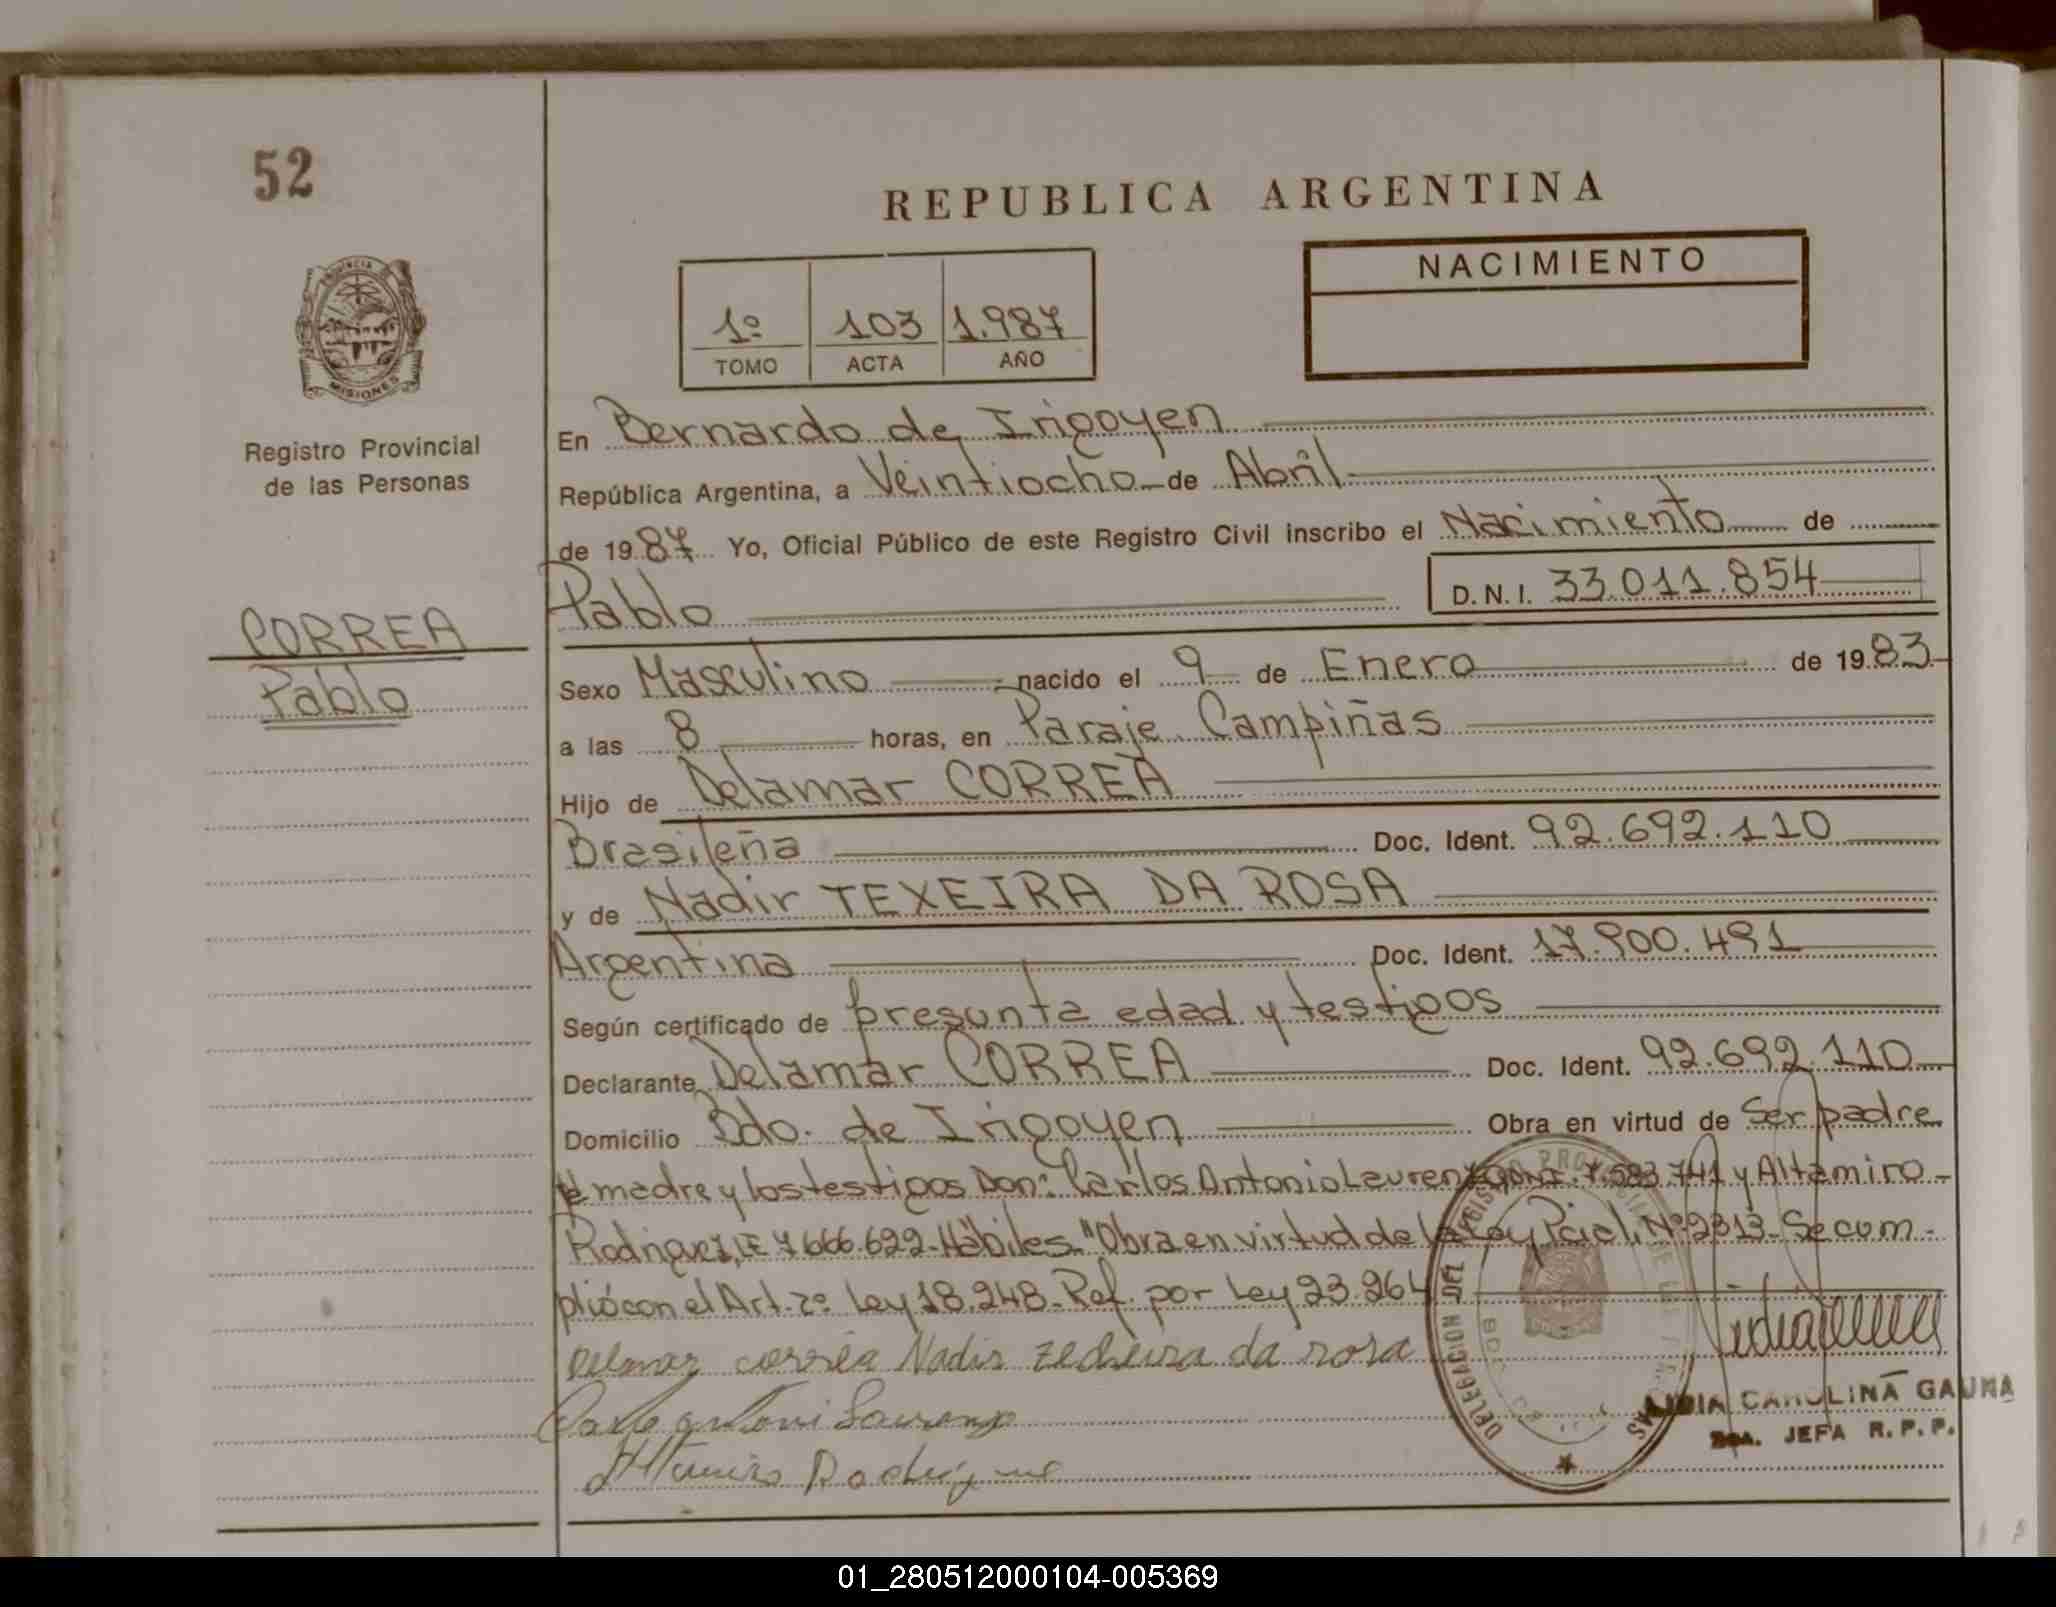 52
REPUBLICA ARGENTINA
PROVINCIA DE
MISIONES
Registro Provincial
de las Personas
CORREA
Pablo
1º 103 1.987
TOMO ACTA AÑO
NACIMIENTO
En Bernardo de Irigoyen
República Argentina, a Veintiocho de Abril
de 1987 Yo, Oficial Público de este Registro Civil inscribo el Nacimiento de
Pablo D.N.I. 33.011.854
Sexo Masculino nacido el 9 de Enero de 1983
a las 8 horas, en Paraje Campiñas
Hijo de Delamar CORREA
Brasileña Doc. Ident. 92.692.110
y de Nadir TEXEIRA DA ROSA
Argentina Doc. Ident. 17.900.491
Según certificado de presunta edad y testigos
Declarante Delamar CORREA Doc. Ident. 92.692.110
Domicilio Bdo. de Irigoyen Obra en virtud de Ser padre
madre y los testigos Don: Carlos Antonio Laurenzo DNI. 7.583.741 y Altamiro
Rodriguez, LE 7666.622. Hábiles. "Obra en virtud de la Ley Pcial. Nº 2313. Se cum-
plió con el Art. 2º Ley 18.248. Ref. por Ley 23.264
Delamar corrêa Nadir da rosa
Altamiro Rodrigue
DELEGACION DEL REGISTRO PROVINCIAL DE LAS PERSONAS
LIDIA CAROLINA GAUNA
JEFA R.P.P.
01_280512000104-005369